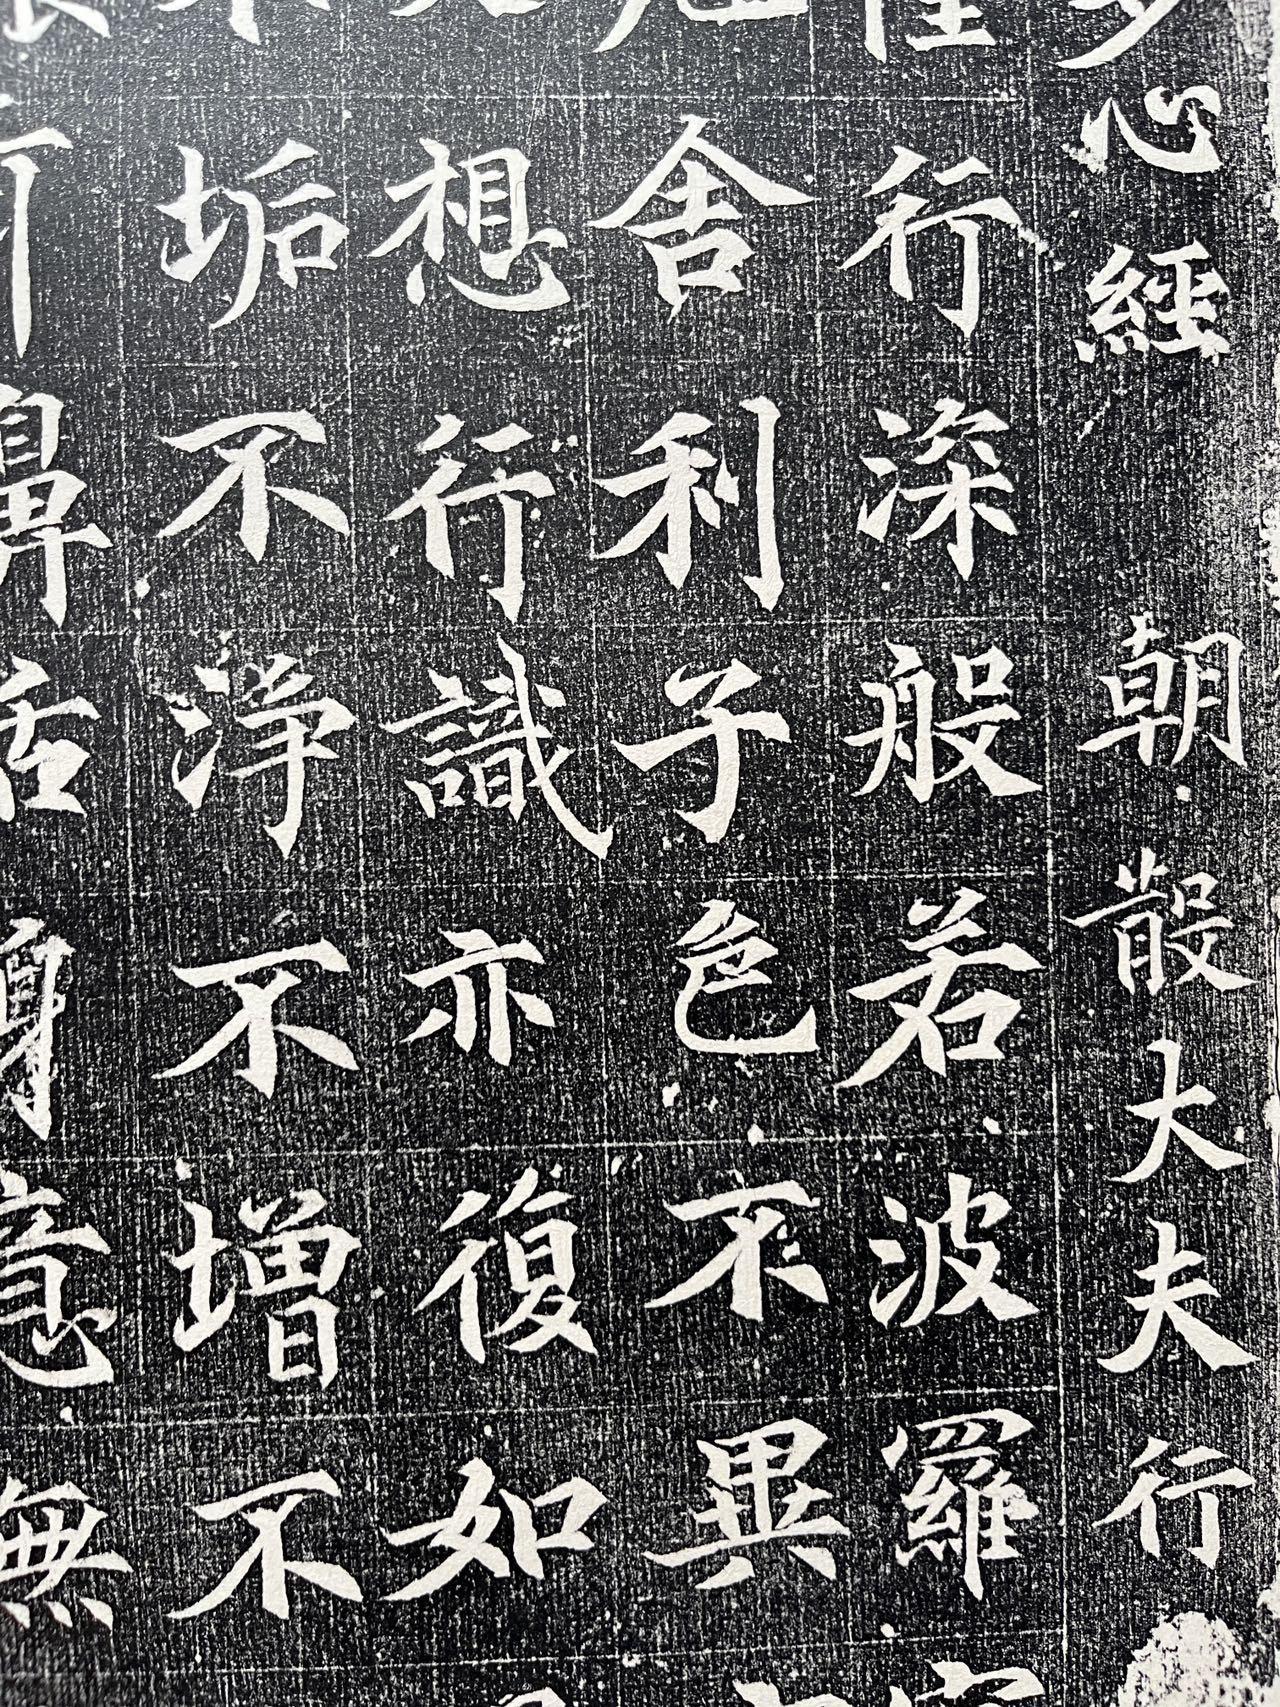 心經 朝散大夫行
行深般若波羅
舍利子色不異
想行識亦復如
垢不淨不增不
鼻舌身意無